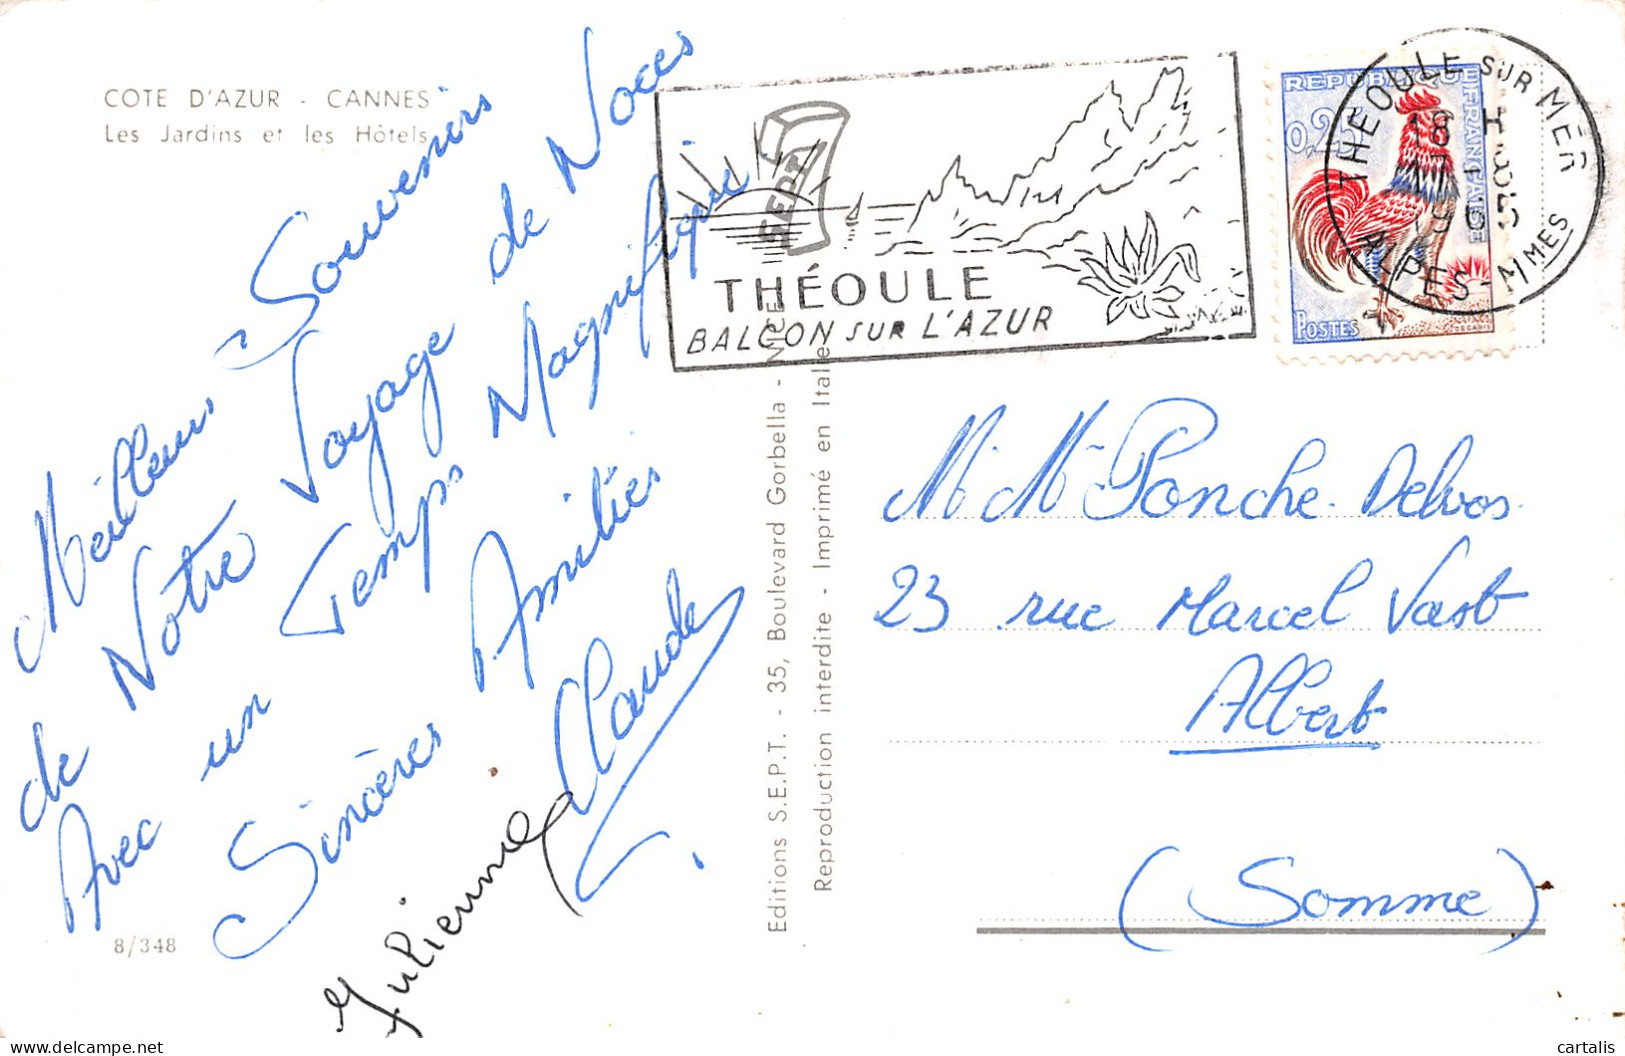 COTE D'AZUR - CANNES
Les Jardins et les Hôtels
Meilleurs Souvenirs
de Notre Voyage de Noces
Avec un Temps Magnifique
Sincères Amitiés
Claude
Julienne
8/348
Editions S.E.P.T. - 35, Boulevard Gorbella - NICE
Reproduction interdite - Imprimé en Italie
SEPT
THÉOULE
BALCON SUR L'AZUR
REPUBLIQUE FRANÇAISE
0,25
POSTES
THEOULE SUR MER
18 H
ALPES-MMES
M. Me Ponche-Delvos
23 rue Marcel Vast
Albert
(Somme)
cartalis
delcampe.net